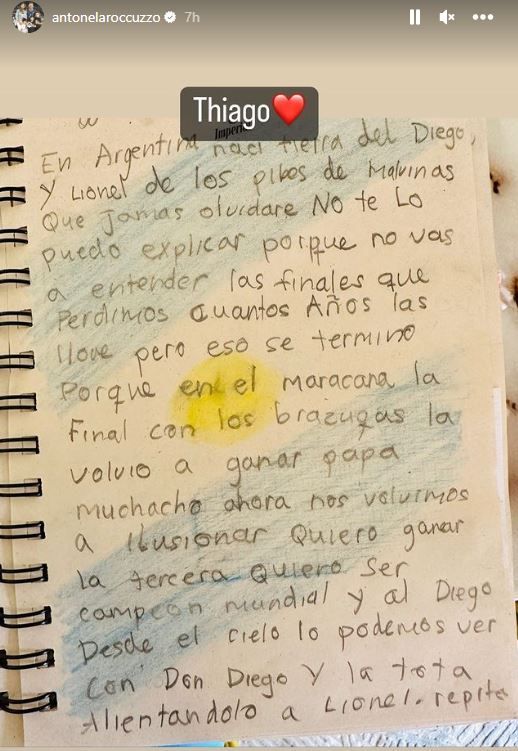 antonelaroccuzzo 7h
Thiago❤️
En Argentina naci tierra del Diego,
Y Lionel de los pibes de Malvinas
Que jamas olvidare No te Lo
puedo explicar porque no vas
a entender las finales que
Perdimos cuantos Años las
llore pero eso se termino
Porque en el maracana la
Final con los brazucas la
volvio a ganar papa
muchacho ahora nos volvimos
a ilusionar Quiero ganar
la tercera Quiero Ser
campeon mundial y al Diego
Desde el cielo lo podemos ver
Con Don Diego Y la tota
Alientandolo a Lionel. repite